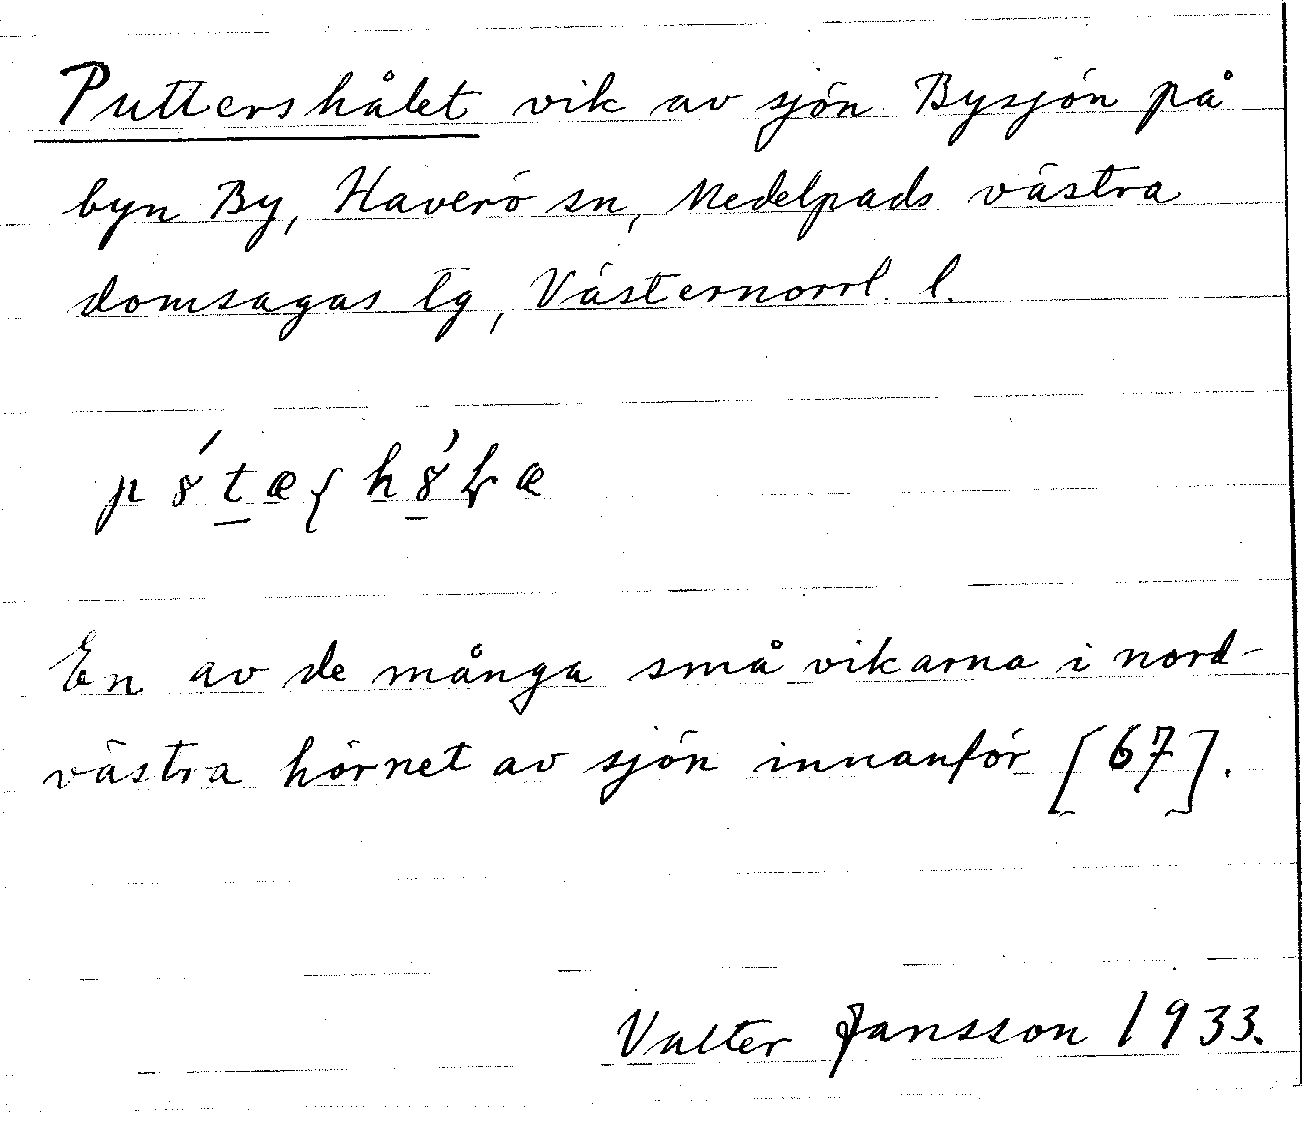 Puttershålet vik av sjön Bysjön på
byn By, Haverö sn, Medelpads västra
domsagas tg, Västernorrl. l.
En av de många små vikarna i nord-
västra hörnet av sjön innanför [67].
Valter Jansson 1933.